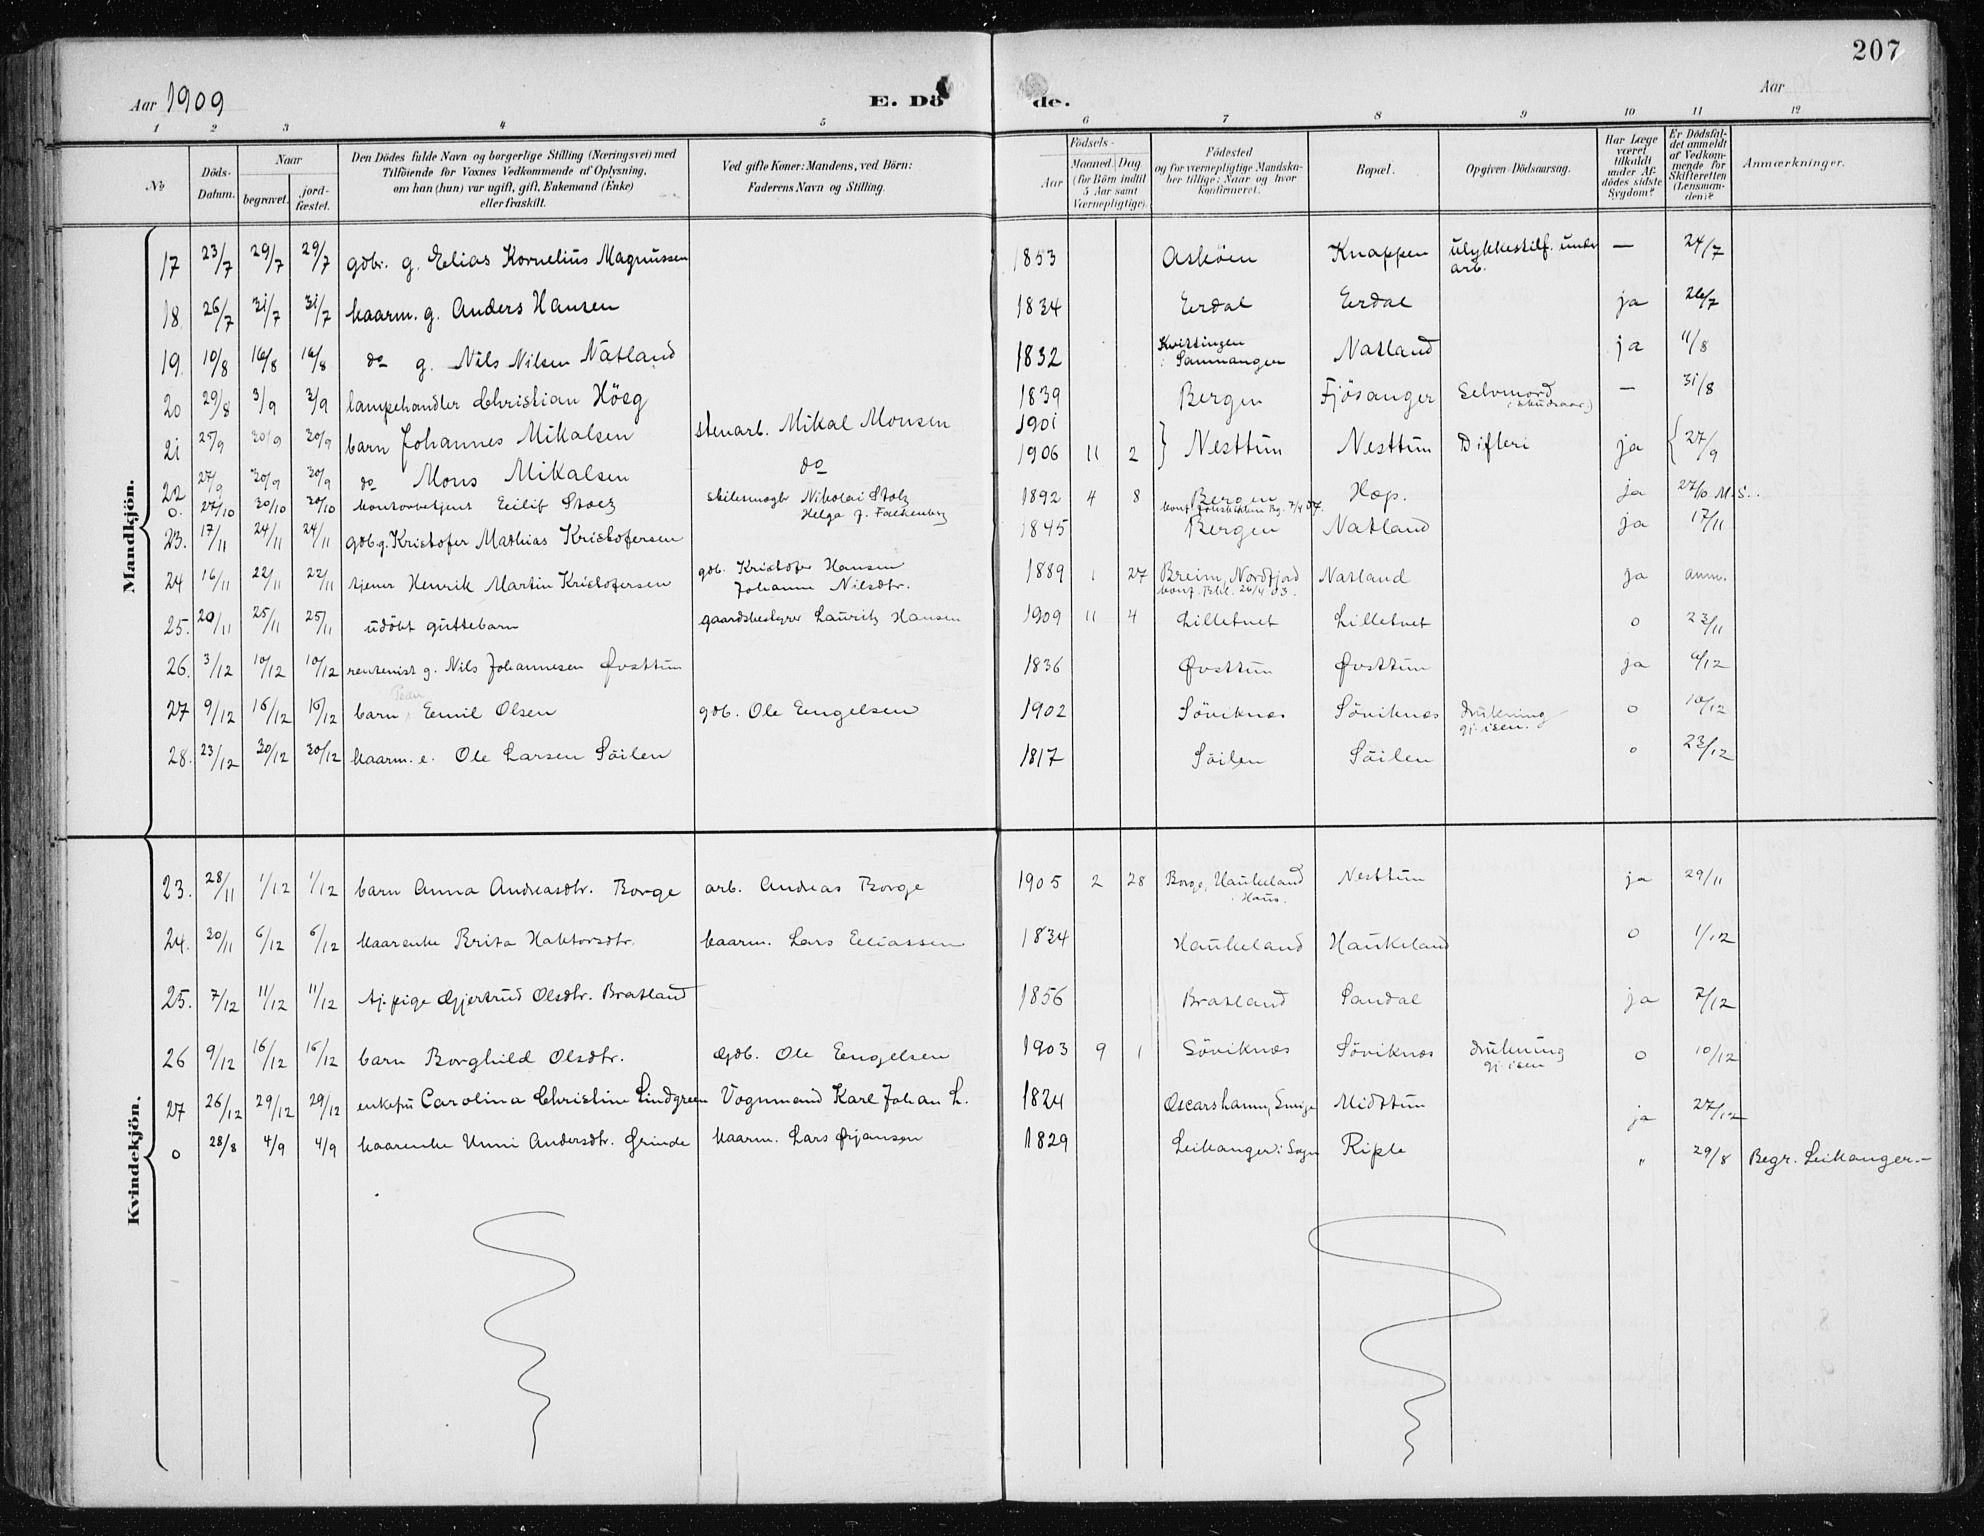 207
Aar 1909
E. Dö de.
Aar
1 2 3 4 5 6 7 8 9 10 11 12
No
Döds-Datum.
Naar
begravet.
jord-fæstet.
Den Dödes fulde Navn og borgerlige Stilling (Næringsvei) med
Tilföiende for Voxnes Vedkommende af Oplysning,
om han (hun) var ugift, gift, Enkemand (Enke)
eller fraskilt.
Ved gifte Koner: Mandens, ved Börn:
Faderens Navn og Stilling.
Födsels-
Aar
Maaned. Dag
(for Börn indtil
5 Aar samt
Værnepligtige).
Födested
og for værnepligtige Mandska-
ber tillige: Naar og hvor
konfirmeret.
Bopæl.
Opgiven Dödsaarsag.
Har Læge
været
tilkaldt
under Af-
dödes sidste
Sygdom?
Er Dödsfal-
det anmeldt
af Vedkom-
mende for
Skifteretten
(Lensman-
den)?
Anmærkninger.
Mandkjön.
17 23/7 29/7 29/7 gdbr. g. Elias Kornelius Magnussen 1853 Asköen Knappen Ulykkestilf. under arb. — 24/7
18 26/7 31/7 31/7 kaarm. g. Anders Hansen 1834 Eerdal Eerdal ja 26/7
19 10/8 16/8 16/8 do g. Nils Nilsen Natland 1832 Kvittingen i Samnanger Natland ja 11/8
20 29/8 3/9 3/9 lampehandler Christian Höeg 1839 Bergen Fjösanger Selvmord (skudsaar) — 31/8
21 25/9 30/9 30/9 barn Johannes Mikalsen stenarb. Mikal Monsen 1901 } Nesttun Nesttun Difteri ja { 27/9
22 27/9 30/9 30/9 do Mons Mikalsen do 1906 11 2
0. 27/10 30/10 30/10 kontorbetjent Eilif Stolz skibsmægler Nikolai Stolz Helga f. Falkenberg 1892 4 8 Bergen Hop. ja 27/10 M.S.
23. 17/11 24/11 24/11 gdb. g. Kristofer Mathias Kristofersen 1845 Bergen Natland ja 17/11
24 16/11 22/11 22/11 tjener Henrik Martin Kristofersen gdb. Kristofer Hansen Johanne Nilsdtr. 1889 1 27 Breim, Nordfjord konf. Bkl. 26/4 03. Natland ja anm.
25. 20/11 25/11 25/11 udöbt guttebarn gaardsbestyrer Lauritz Hansen 1909 11 4 Lilletvet Lilletvet 0 23/11
26. 3/12 10/12 10/12 rentenist g. Nils Johannesen Øvsttun 1836 Øvsttun Øvsttun ja 6/12
27 9/12 16/12 16/12 barn Peder Eemil Olsen gdb. Ole Eengelsen 1902 Söviknæs Söviknæs drukning gj. isen. 0 10/12
28. 23/12 30/12 30/12 kaarm. e. Ole Larsen Söilen 1817 Söilen Söilen 0 23/12
Kvindekjön.
23. 28/11 1/12 1/12 barn Anna Andreasdtr. Borge arb. Andreas Borge 1905 2 28 Borge, Haukeland i Haus. Nesttun ja 29/11
24. 30/11 6/12 6/12 kaarenke Brita Haktorsdtr. kaarm. Lars Eeliassen 1834 Haukeland Haukeland 0 1/12
25. 7/12 11/12 11/12 tj.pige Gjertrud Olsdtr. Bratland 1856 Bratland Sandal ja 7/12
26 9/12 16/12 16/12 barn Borghild Olsdtr. Gdb. Ole Eengelsen 1903 9 1 Söviknæs Söviknæs drukning gj. isen 0 10/12
27 26/12 29/12 29/12 enkefru Carolina Christine Lindgreen Vognmand Karl Johan L. 1824 Oscarshamn, Sverige Midttun ja 27/12
0 28/8 4/9 4/9 kaarenke Unni Andersdtr. Grinde kaarm. Lars Ørjansen 1829 Leikanger i Sogn Riple " 29/8 Begr. Leikanger.—